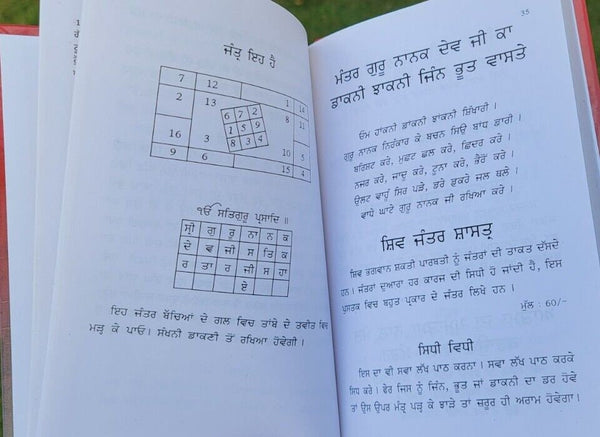 ਜੰਤ੍ਰ ਇਹ ਹੈ
7 12 1 14
2 13 8 11
6 7 2
1 5 9
8 3 4
16 3 10 5
9 6 15 4
ੴ ਸਤਿਗੁਰੂ ਪ੍ਰਸਾਦਿ ॥
ਸ੍ਰੀ ਗੁ ਰੂ ਨਾ ਨ ਕ
ਦੇ ਵ ਜੀ ਸ ਤਿ ਕ
ਰ ਤਾ ਰ ਜੀ ਸ ਹਾ
ਏ
ਇਹ ਜੰਤਰ ਬੱਚਿਆਂ ਦੇ ਗਲ ਵਿਚ ਤਾਂਬੇ ਦੇ ਤਵੀਤ ਵਿਚ
ਮੜ੍ਹ ਕੇ ਪਾਓ। ਸੰਖਨੀ ਡਾਕਣੀ ਤੋਂ ਰਖਿਆ ਹੋਵੇਗੀ।
35
ਮੰਤਰ ਗੁਰੂ ਨਾਨਕ ਦੇਵ ਜੀ ਕਾ
ਡਾਕਨੀ ਝਾਕਨੀ ਜਿੰਨ ਭੂਤ ਵਾਸਤੇ
ਓਮ ਹਾਂਕਨੀ ਡਾਕਨੀ ਝਾਕਨੀ ਸ਼ਿੰਖਾਰੀ।
ਗੁਰੂ ਨਾਨਕ ਨਿਰੰਕਾਰ ਕੇ ਬਚਨ ਸਿਉ ਬਾਂਧ ਡਾਰੀ।
ਬਰਿਸ਼ਟ ਕਰੇ, ਮੁਛਟ ਛਲ ਕਰੇ, ਛਿਦਰ ਕਰੇ।
ਨਜਰ ਕਰੇ, ਜਾਦੂ ਕਰੇ, ਟੂਨਾ ਕਰੇ, ਭੈਰੋਂ ਕਰੇ।
ਉਲਟ ਵਾਹੂੰ ਸਿਰ ਪੜੇ, ਡਰੇ ਫੁਕਰੇ ਜਲ ਥਲੇ।
ਵਾਧੇ ਘਾਟੇ ਗੁਰੂ ਨਾਨਕ ਜੀ ਰਖਿਆ ਕਰੇ।
ਸ਼ਿਵ ਜੰਤਰ ਸ਼ਾਸਤ੍ਰ
ਸ਼ਿਵ ਭਗਵਾਨ ਸ਼ਕਤੀ ਪਾਰਬਤੀ ਨੂੰ ਜੰਤਰਾਂ ਦੀ ਤਾਕਤ ਦੱਸਦੇ
ਹਨ। ਜੰਤਰਾਂ ਦੁਆਰਾ ਹਰ ਕਾਰਜ ਦੀ ਸਿਧੀ ਹੋ ਜਾਂਦੀ ਹੈ, ਇਸ
ਪੁਸਤਕ ਵਿਚ ਬਹੁਤ ਪ੍ਰਕਾਰ ਦੇ ਜੰਤਰ ਲਿਖੇ ਹਨ।
ਮੁੱਲ : 60/-
ਸਿਧੀ ਵਿਧੀ
ਇਸ ਦਾ ਵੀ ਸਵਾ ਲੱਖ ਪਾਠ ਕਰਨਾ। ਸਵਾ ਲੱਖ ਪਾਠ ਕਰਕੇ
ਸਿਧ ਕਰੇ। ਫੇਰ ਜਿਸ ਨੂੰ ਜਿੰਨ, ਭੂਤ ਜਾਂ ਡਾਕਨੀ ਦਾ ਡਰ ਹੋਵੇ
ਤਾਂ ਉਸ ਉਪਰ ਮੰਤ੍ਰ ਪੜ੍ਹ ਕੇ ਝਾੜੇ ਤਾਂ ਜ਼ਰੂਰ ਹੀ ਅਰਾਮ ਹੋਵੇਗਾ।